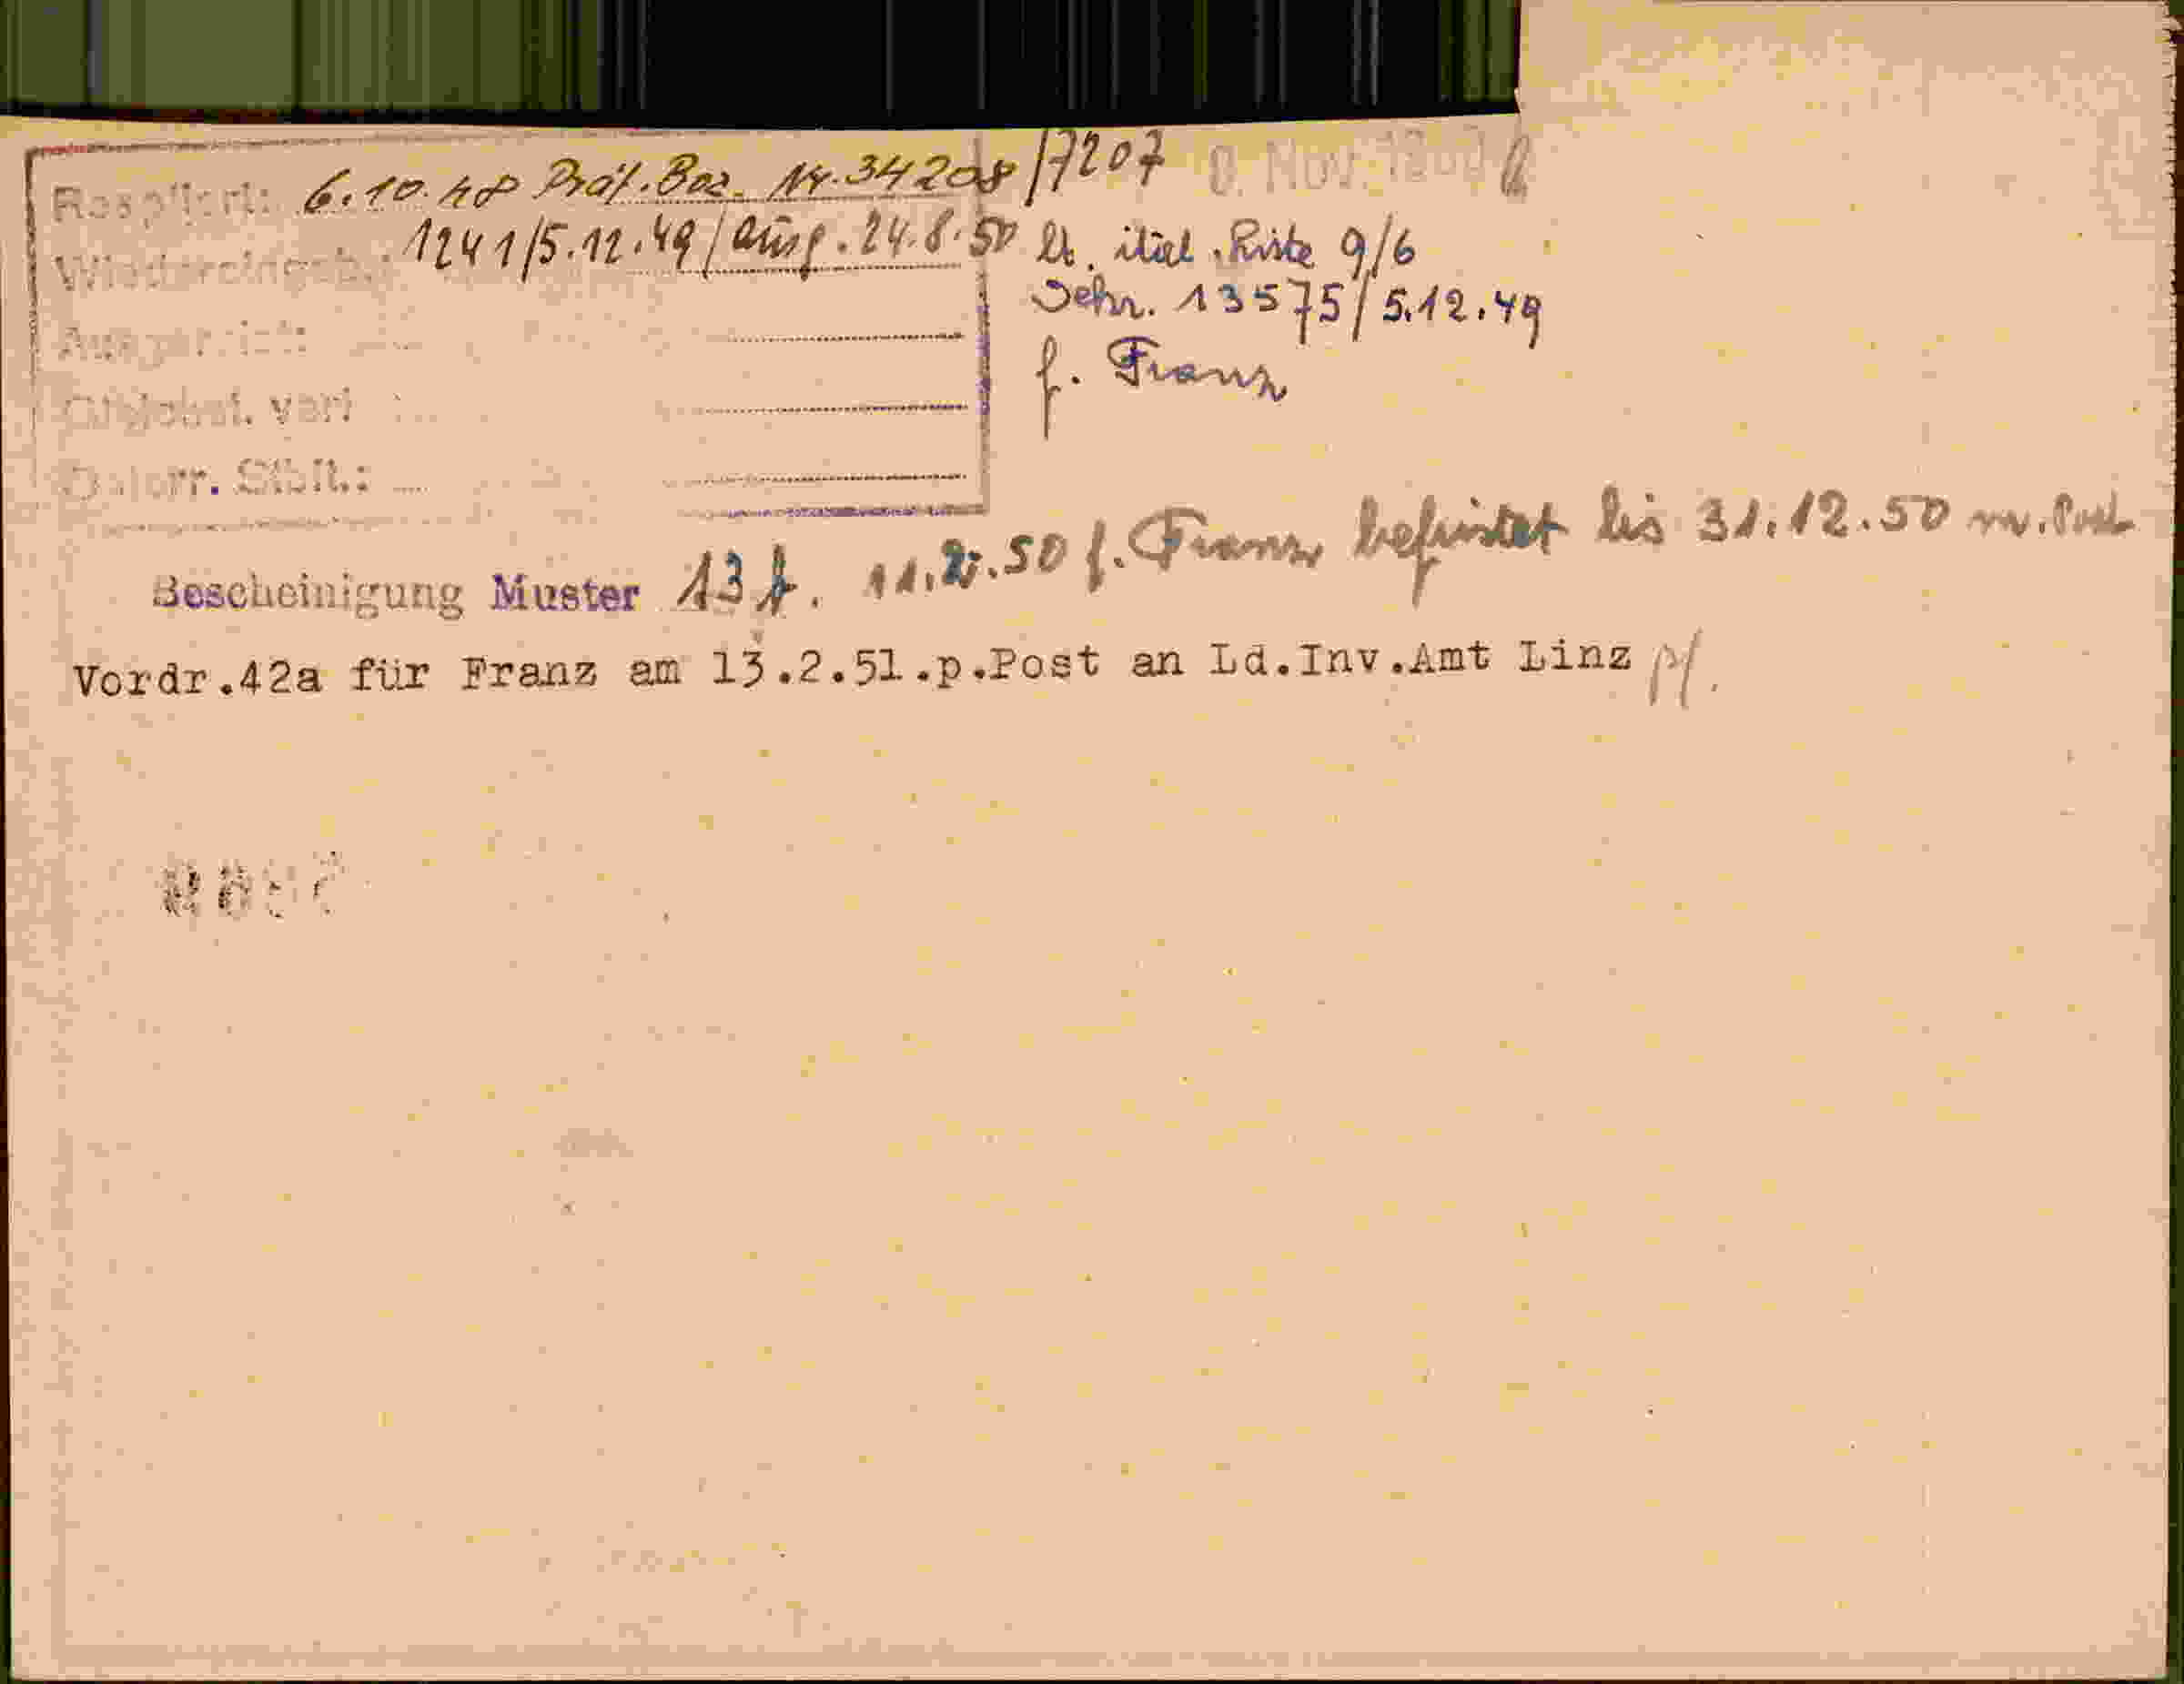 6.10.48 Präf. Boz. Nr. 34208/7207
1241/5.12.49/ausg. 24.8.50
lt. ital. Liste 9/6
Dekr. 13575/5.12.49
f. Franz
Österr. Stbft.:
Bescheinigung Muster 13 f. 11.2.50 f. Franz befristet bis 31.12.50 m. Post
Vordr.42a für Franz am 13.2.51.p.Post an Ld.Inv.Amt Linz